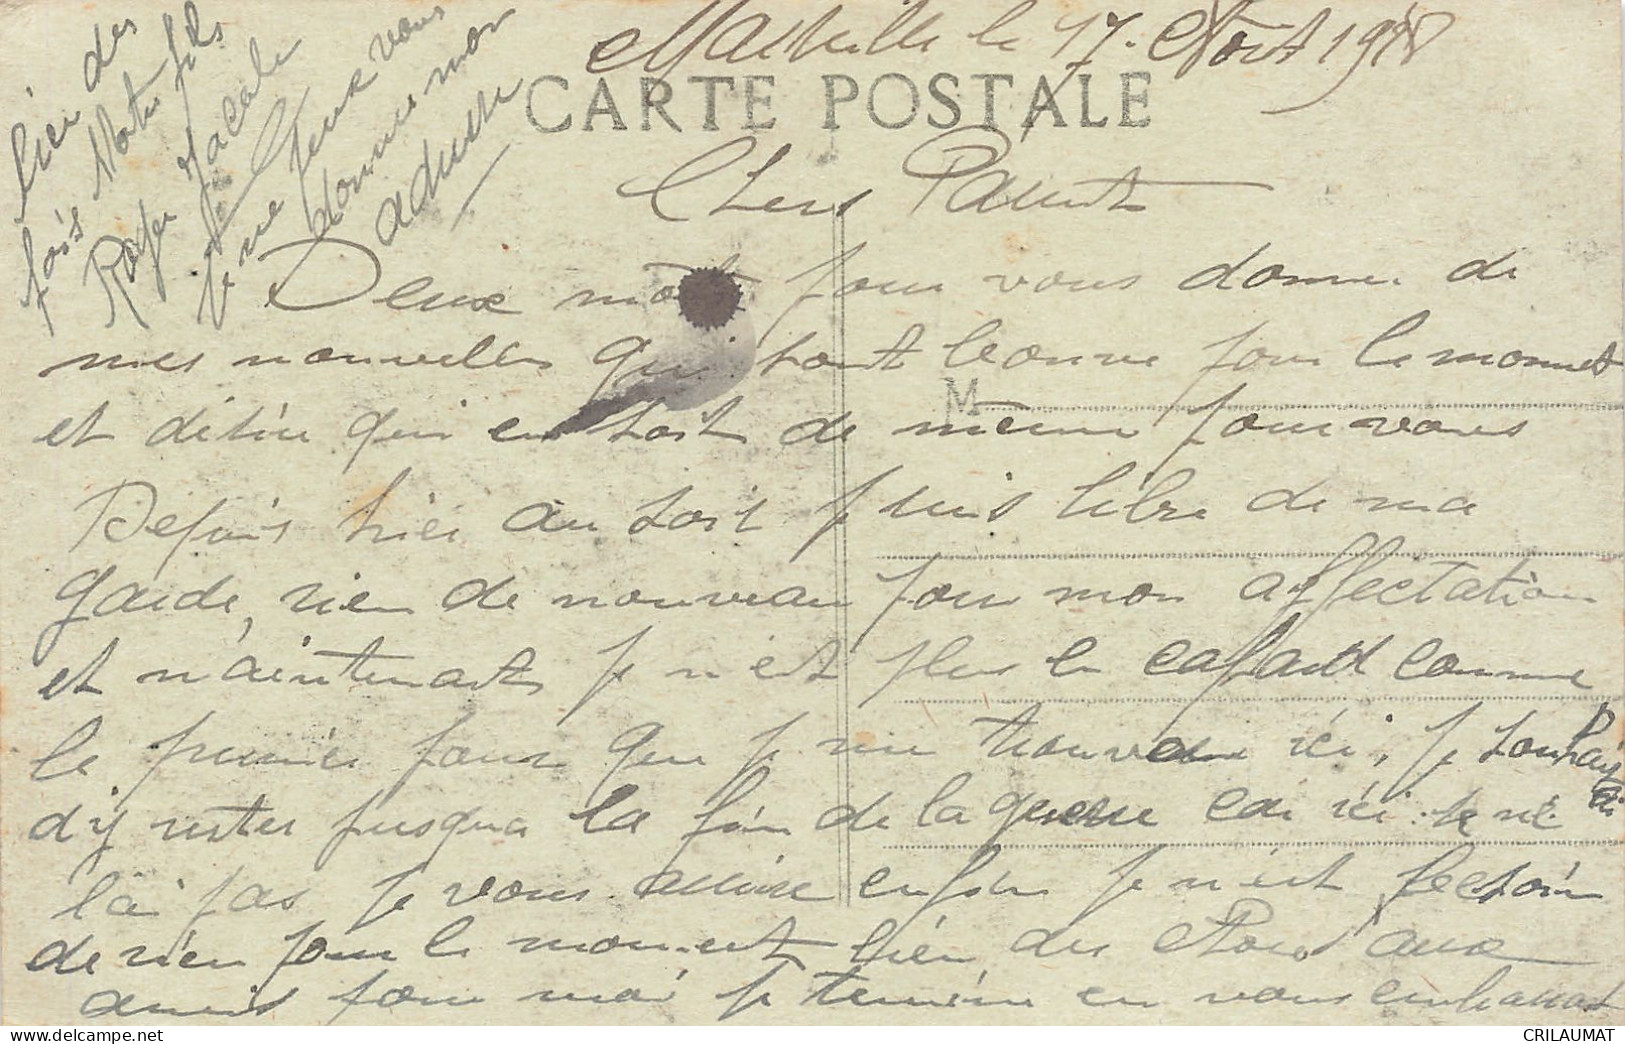 Marseille le 17 Août 1918
CARTE POSTALE
Chers Parents
Deux mots pour vous donner de
mes nouvelles qui sont bonne pour le moment
et désire qui en soit de même pour vous
Depuis hier au soir je suis libre de ma
garde, rien de nouveau pour mon affectation
et maintenant je n'est plus le cafard comme
le premier jour que je me trouve ici, je souhai
d'y rester jusqua la fin de la guerre car ici
là pas je vous assure enfin je n'est besoin
de rien pour le moment bien des aux
amis pour moi je termine en vous embrassat
M
bien des
fois Votre fils
Roger
je peux vous
donner mon
adresse
www.delcampe.net
CRILAUMAT